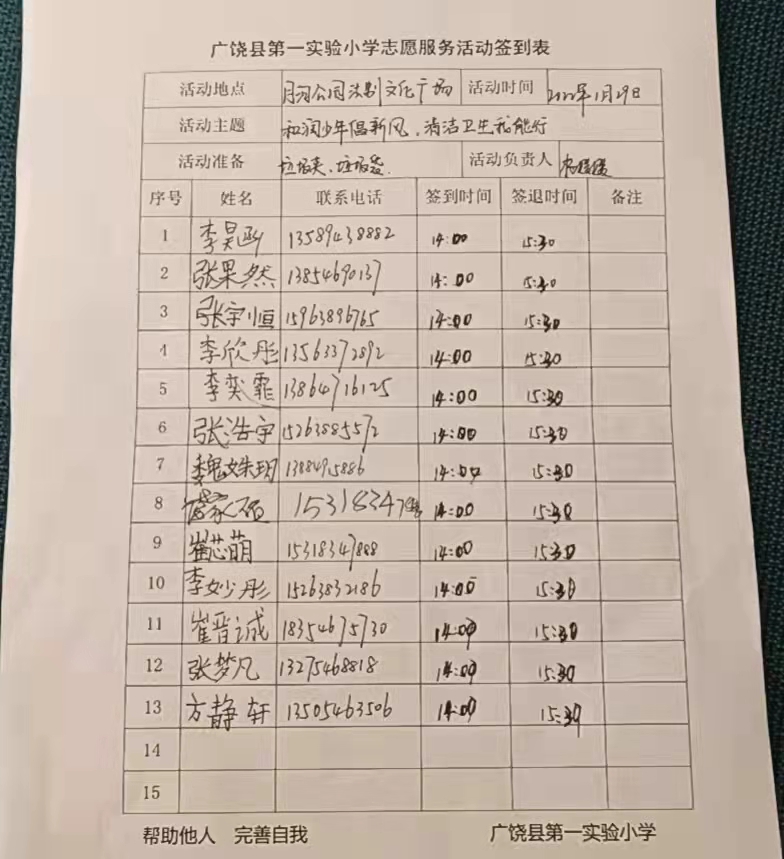 广饶县第一实验小学志愿服务活动签到表
活动地点 月河公园法制文化广场 活动时间 2022年1月29日
活动主题 和润少年倡新风、清洁卫生我能行
活动准备 垃圾夹、垃圾袋. 活动负责人
序号 姓名 联系电话 签到时间 签退时间 备注
1 李昊函 13589438882 14:00 15:30
2 张果然 13854690137 14:00 15:30
3 张宇恒 15963896765 14:00 15:30
4 李欣彤 13563372892 14:00 15:30
5 李奕霏 13864716125 14:00 15:30
6 张浩宇 15263885572 14:00 15:30
7 魏姝玥 1388495886 14:00 15:30
8 14:00 15:30
9 崔芯萌 15318347888 14:00 15:30
10 李妙彤 15263832186 14:00 15:30
11 崔晋诚 18354675730 14:00 15:30
12 张梦凡 13275468818 14:00 15:30
13 方静轩 13505463506 14:00 15:30
14
15
帮助他人 完善自我 广饶县第一实验小学